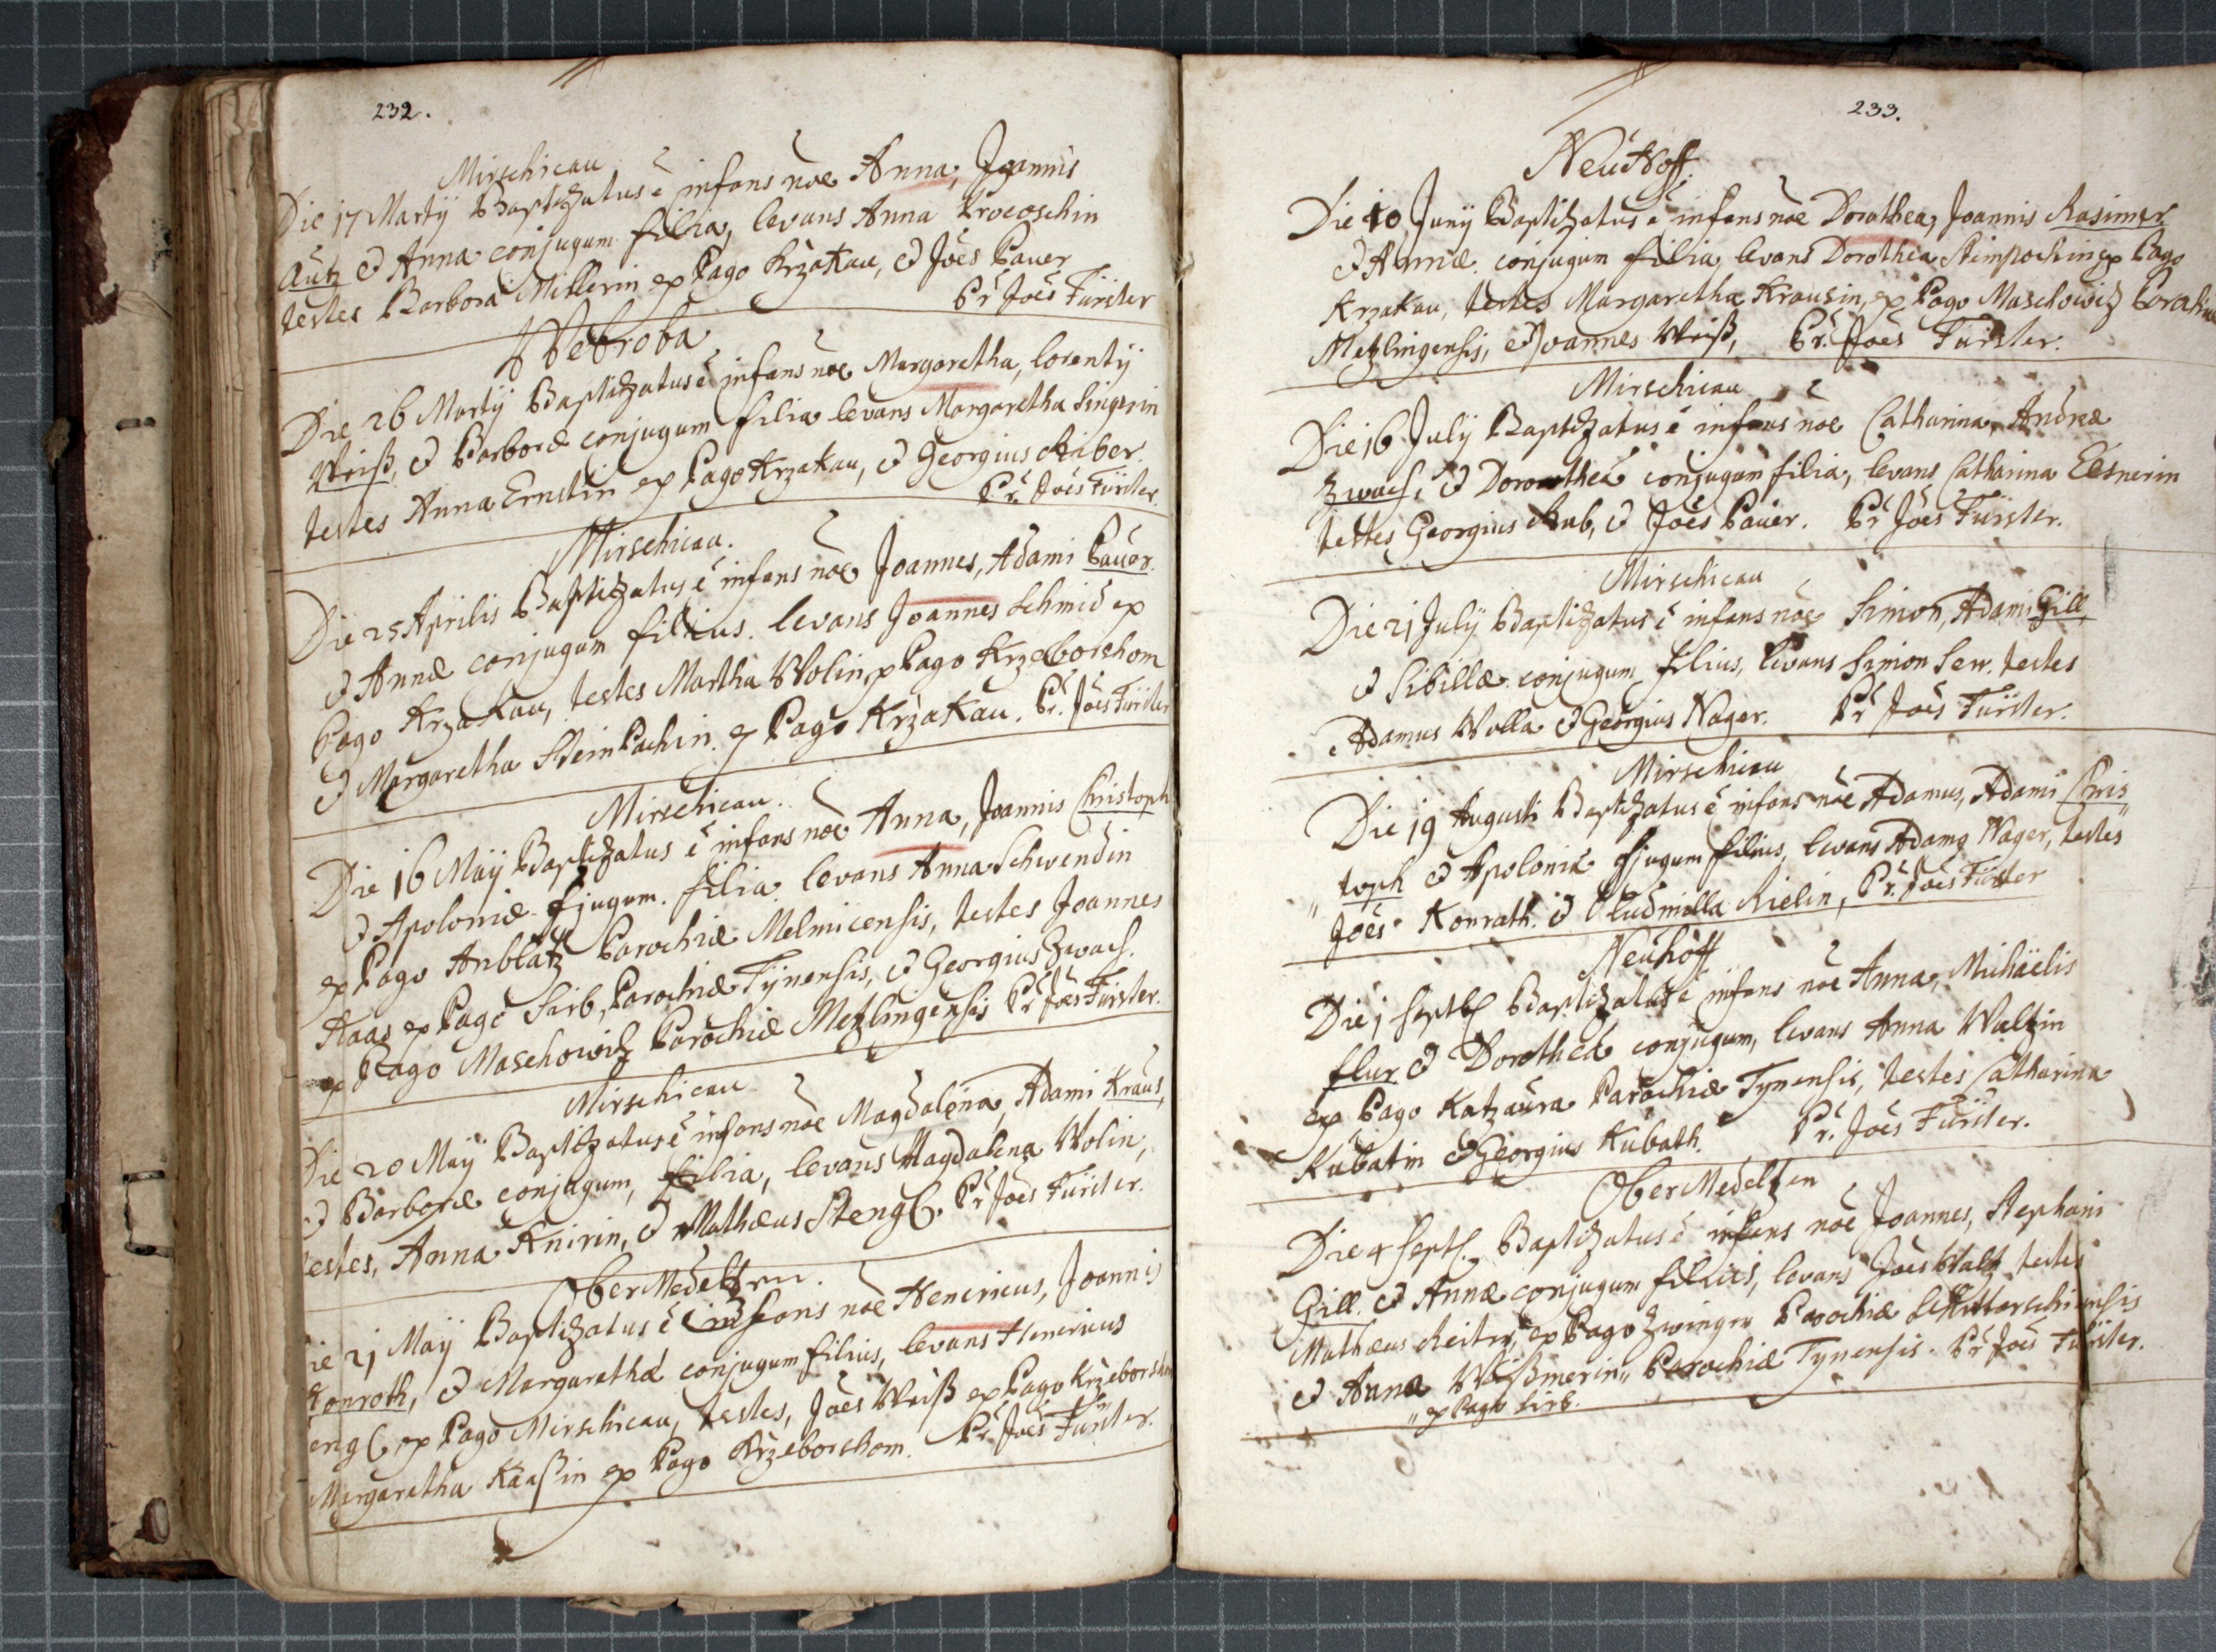 232.
Mirschicau
Die 17 Martÿ Baptizatus ē infans nõe Anna, Joannis
Autz & Anna conjugum filia, levans Anna
testes Barbora Millerin ex Pago Krzakau, & Joẽs Pauer
Pr̃ Joẽs Fürster
Webroba
Die 26 Martÿ Baptizatus ē infans nõe Margaretha, Lorentÿ
Weiß, & Barboræ conjugum filia levans Margaretha Singerin
testes Anna Ernstin ex Pago Krzakau, & Georgius
Pr̃. Joẽs Fürster.
Mirschicau.
Die 25 Aprilis Baptizatus ē infans nõe Joannes, Adami Pauer.
& Annæ conjugum filius. levans Joannes Schmid ex
Pago Krzakau, testes Martha Wolin, ex Pago Krzeborshom
& Margaretha SteinPachin ex Pago Krzakau. Pr̃. Joẽs Fürster
Mirschicau.
Die 16 Maÿ Baptizatus ē infans nõe Anna, Joannis Christoph
& Apoloniæ ɔjugum. filia. levans Anna Schwendin
ex Pago Anblatz Parochiæ Melmicensis, testes Joannes
Haas ex Pago Sirb, Parochiæ Tÿnensis, & Georgius Zwach.
ex Pago Maschowitz Parochiæ Metzlingensis Pr̃ Joẽs Fürster.
Mirschicau
Die 20 Maÿ Baptizatus ē infans nõe Magdalena, Adami Kraus,
& Barboræ conjugum, filia, levans Magdalena Wolin,
testes, Anna Knirin, & Mathæus Stengl. Pr̃ Joẽs Fürster.
OberMedeltzen.
Die 21 Maÿ Baptizatus ē infans nõe Henericus, Joannis
Konroth, & Margarethæ conjugum filius, levans Henericus
engl ex Pago Mirschicau, testes, Joẽs Weiß ex Pago Krzeborshom
Margaretha Kaaßin ex Pago Krzeborshom. Pr̃ Joẽs Fürster.
233.
Neuhoff.
Die 10 Junÿ Baptizatus ē infans nõe Dorothea, Joannis Rasimer
& Annæ conjugum filia, levans Dorothea ex Pago
Krzakau, testes Margaretha Krausin, ex Pago Maschowitz Parochiæ
Metzlingensis, & Joannes Weiß, Pr̃. Joẽs Fürster.
Mirschicau
Die 16 Julÿ Baptizatus ē infans nõe Catharina, Andreæ
Zwach, & Dorotheæ conjugum filia, levans Catharina Elsnerin
testes Georgius & Joẽs Pauer. Pr̃ Joẽs Fürster.
Mirschicau
Die 21 Julÿ Baptizatus ē infans nõe Simon, Adami Gill
& Sibillæ conjugum filius, levans Simon Serr. testes
Adamus Wolla & Georgius Nager. Pr̃ Joẽs Fürster.
Mirschicau
Die 19 Augusti Baptizatus ē infans nõe Adamus, Adami Chris
„toph & Apoloniæ ɔjugum filius, levans Adamꝰ Nager, testes
Joẽs Konrath. & Ludmilla Rielin, Pr̃. Joẽs Fürster
Neuhoff
Die 1 Septb Baptizatus ē infans nõe Anna, Michaëlis
flur & Dorotheæ conjugum, levans Anna Waltzin
ex Pago Katzaura Parochiæ Tynensis, testes Catharina
Kubatin & Georgius Kubath. Pr̃. Joẽs Fürster.
OberMedeltzen
Die 4 Septb. Baptizatus ē infans nõe Joannes, Stephani
Gill. & Annæ conjugum filius, levans Joẽs Waltz testes
Mathæus Reiter, ex Pago Zwinger Parochiæ
& Anna Weißmerin„ Parochiæ Tynensis. Pr̃ Joẽs Fürster.
„ex Pago Sirb.